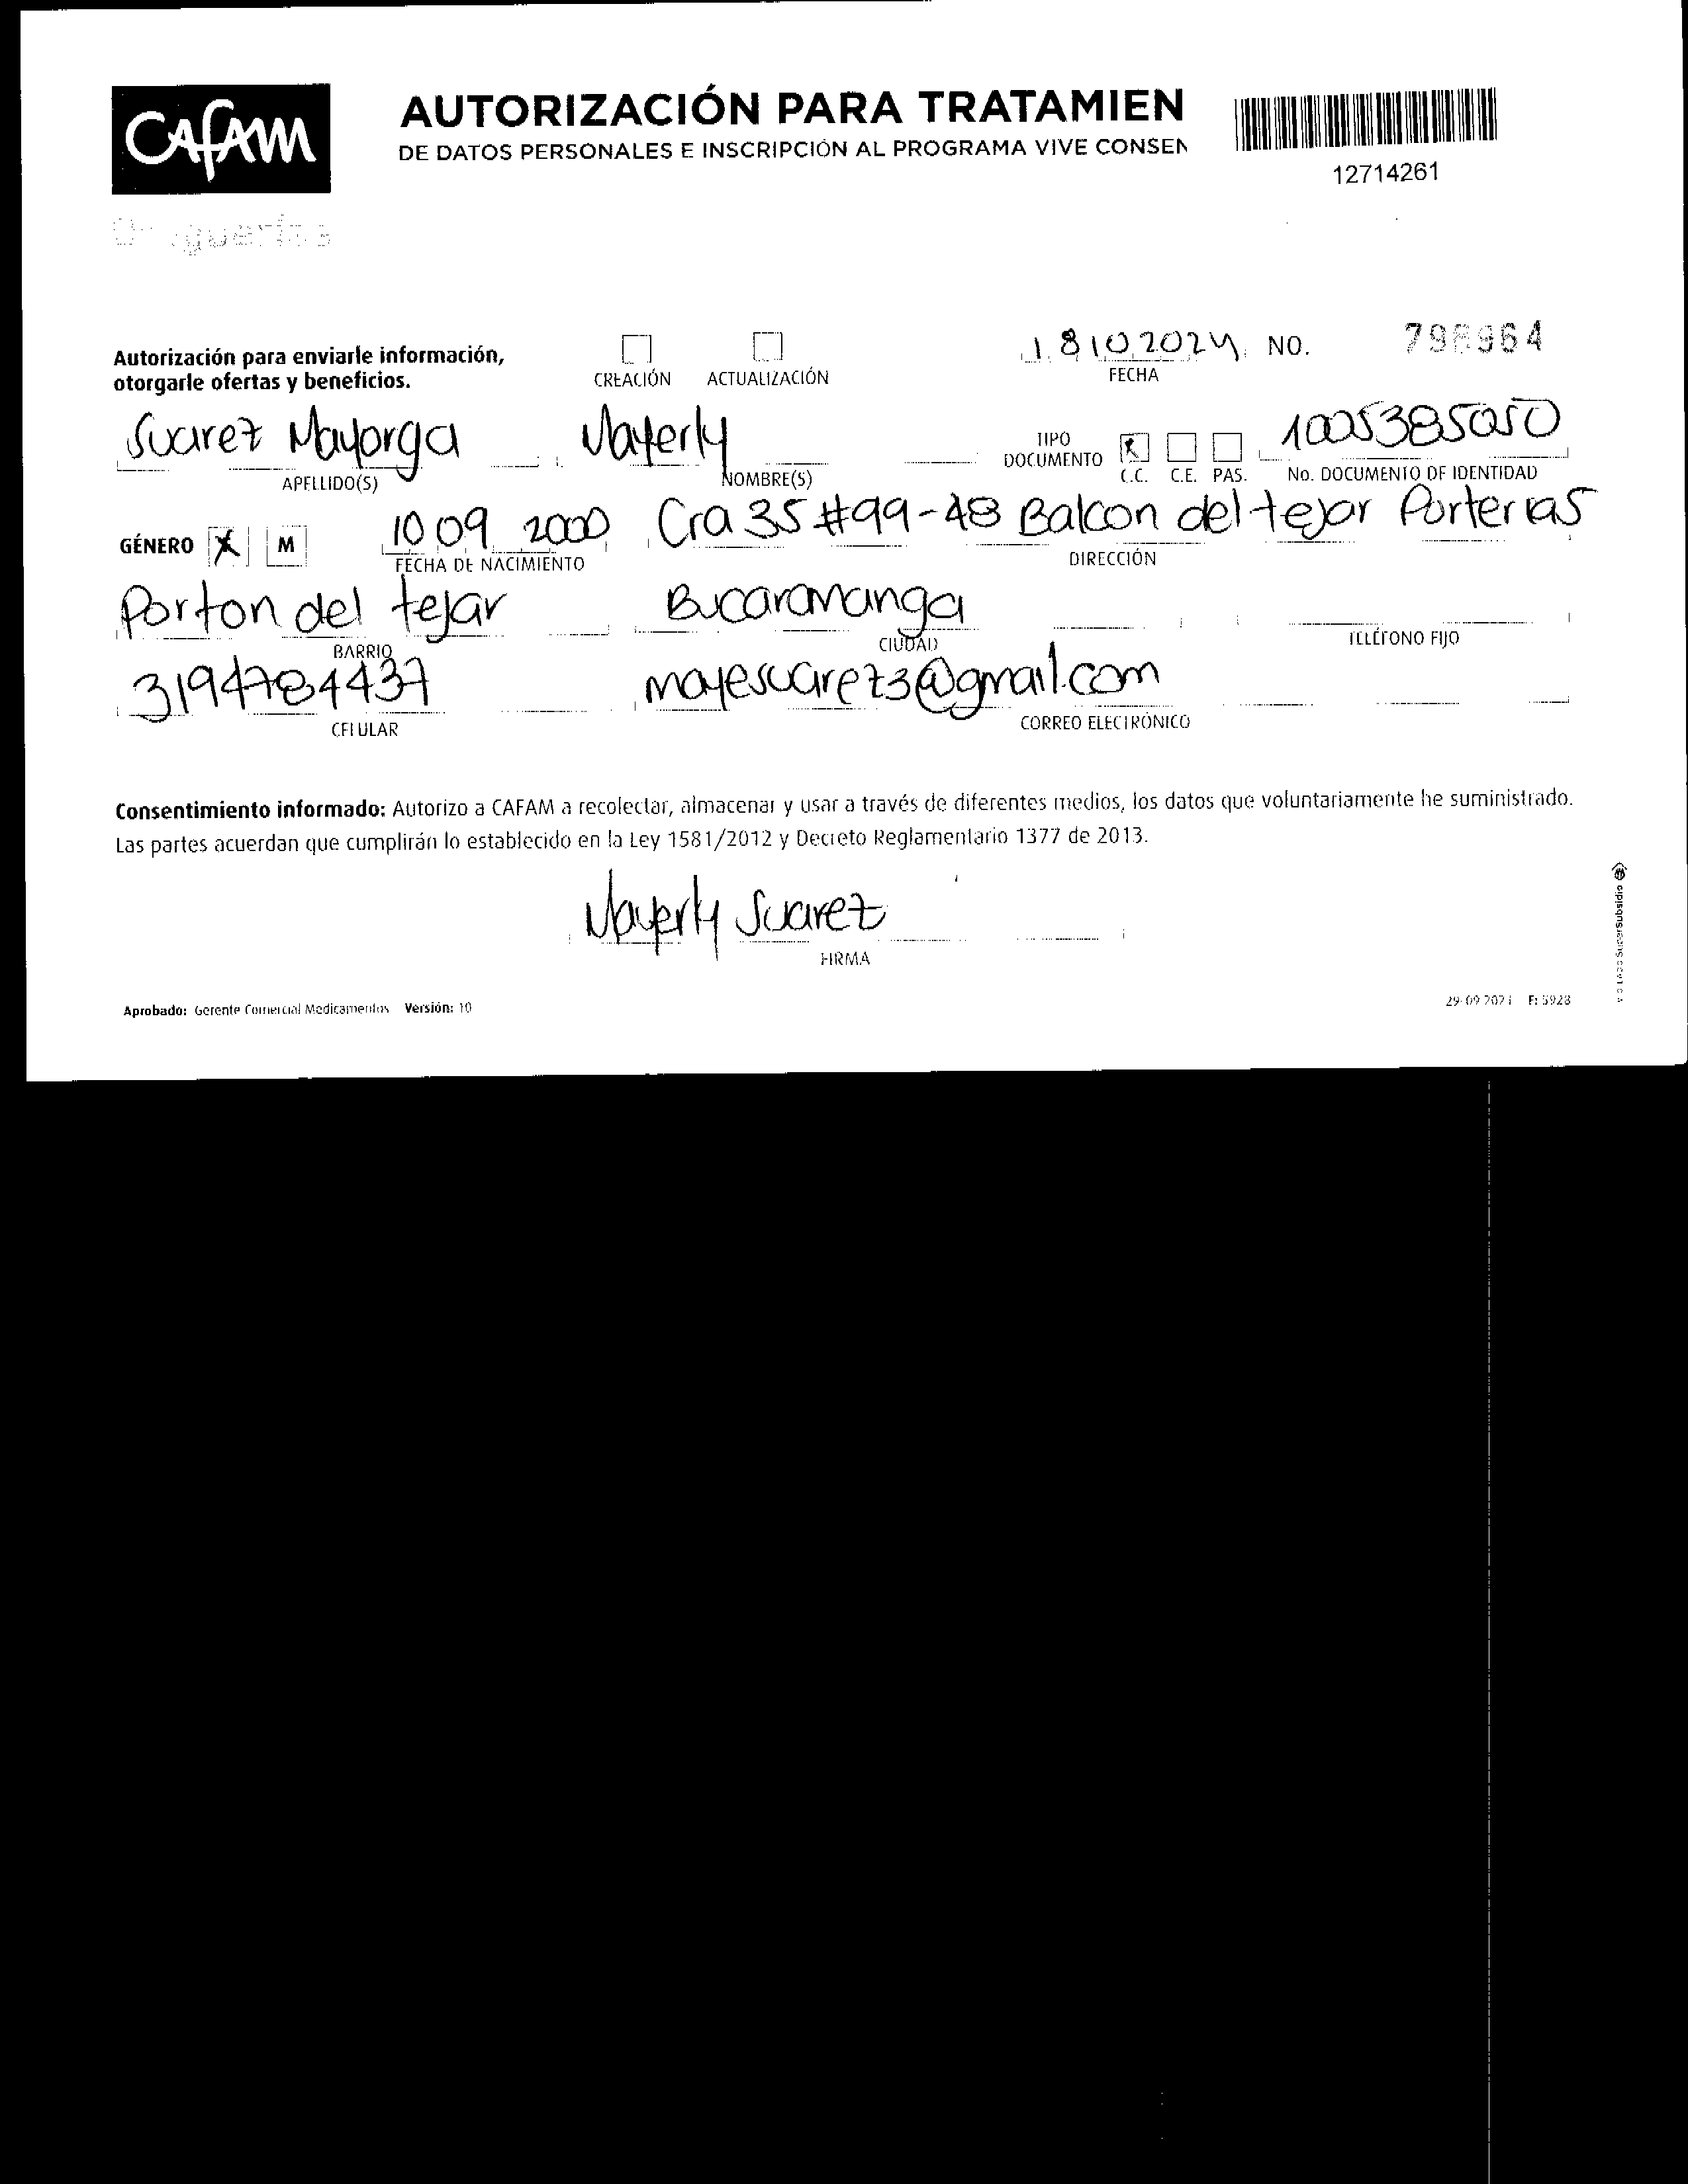 CAFAM
AUTORIZACIÓN PARA TRATAMIEN
DE DATOS PERSONALES E INSCRIPCIÓN AL PROGRAMA VIVE CONSEN
12714261
Droguerías
Autorización para enviarle información,
otorgarle ofertas y beneficios.
CREACIÓN ACTUALIZACIÓN
18 10 2024 NO. 798964
FECHA
Suarez Mayorga Mayerly
TIPO DOCUMENTO X 1005385050
APELLIDO(S) NOMBRE(S) C.C. C.E. PAS. No. DOCUMENTO DE IDENTIDAD
GÉNERO X M 10 09 2000 Cra 35 #99-48 Balcon del tejar Porterias
FECHA DE NACIMIENTO DIRECCIÓN
Porton del tejar Bucaramanga
BARRIO CIUDAD TELÉFONO FIJO
3194784437 mayesuarez3@gmail.com
CELULAR CORREO ELECTRÓNICO
Consentimiento informado: Autorizo a CAFAM a recolectar, almacenar y usar a través de diferentes medios, los datos que voluntariamente he suministrado.
Las partes acuerdan que cumplirán lo establecido en la Ley 1581/2012 y Decreto Reglamentario 1377 de 2013.
Mayerly Suarez
FIRMA
Aprobado: Gerente Comercial Medicamentos Versión: 10
29-09-2021 F: 5928